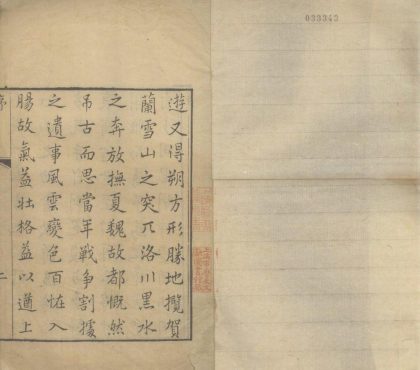 遊又得朔方形勝地攬賀
蘭雪山之突兀洛川黑水
之奔放撫夏魏故都慨然
吊古而思當年戰爭割據
之遺事風雲變色百怪入
腸故氣益壯格益以遒上
序
二
033343